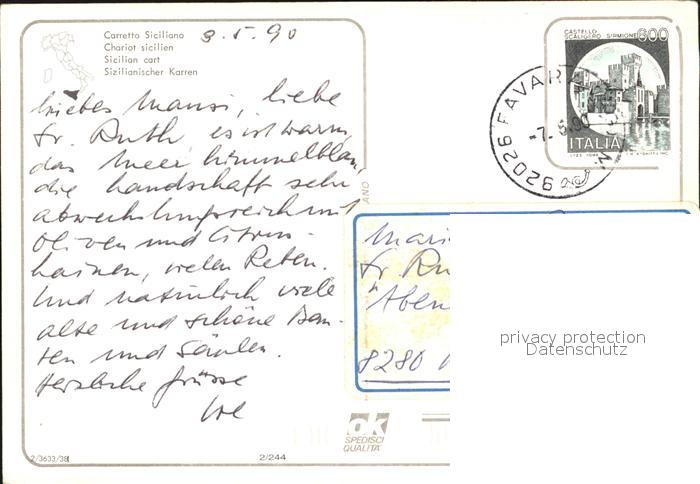 Carretto Siciliano
Chariot sicilien
Sicilian cart
Sizilianischer Karren
3.5.90
liebes Mausi, liebe
Fr. Ruth, es ist warm,
das Meer himmelblau,
die Landschaft sehr
abwechslungsreich mit
Oliven und Citrus-
hainen, vielen Reben.
Und natürlich viele
alte und schöne Bau-
ten und Säulen.
Herzliche Grüsse
CASTELLO
SCALIGERO SIRMIONE 600
ITALIA
92026 FAVARA
-7.5.90
Fr Ru
8280
privacy protection
Datenschutz
ok
SPEDISCI
QUALITA'
2/3633/38
2/244